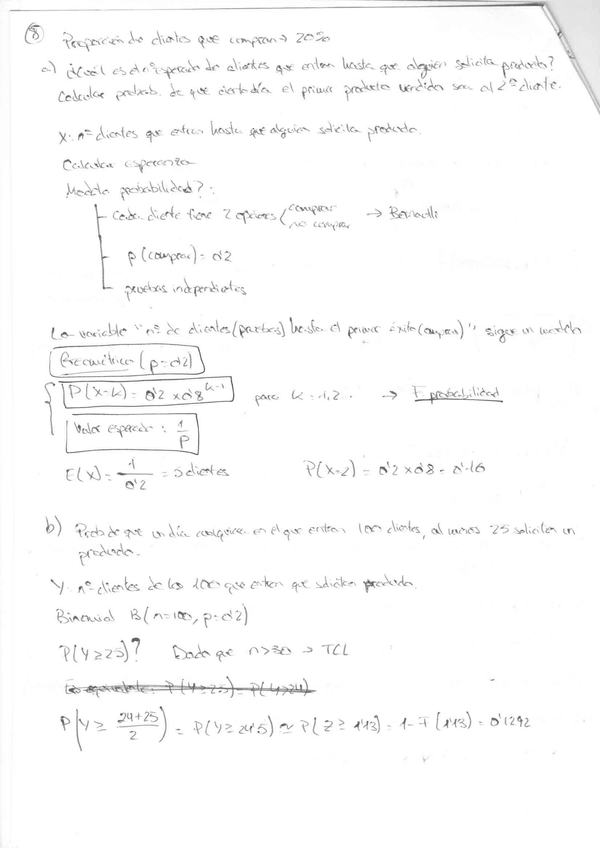 8 Proporción de clientes que compran → 20%
a) ¿Cuál es el nº esperado de clientes que entran hasta que alguien solicita producto?
Calcular probab. de que cierto día el primer producto vendido sea al 2º cliente.
X: nº clientes que entran hasta que alguien solicita producto.
Calcular esperanza
Modelo probabilidad?:
Cada cliente tiene 2 opciones (comprar
no comprar → Bernoulli
p(comprar) = 0'2
pruebas independientes
La variable "nº de clientes (pruebas) hasta el primer éxito (compran)" sigue un modelo
Geométrico (p=0'2)
P(X=k) = 0'2 x 0'8^(k-1) para k = 1,2.. → F probabilidad
Valor esperado: 1/P
E(X) = 1/0'2 = 5 clientes P(X=2) = 0'2 x 0'8 = 0'16
b) Prob de que un día cualquiera en el que entran 100 clientes, al menos 25 soliciten un
producto.
Y: nº clientes de los 100 que entran que soliciten producto.
Binomial B(n=100, p=0'2)
P(Y≥25)? Dado que n>30 → TCL
Es equivalente: P(Y≥25) = P(Y>24)
P(Y ≥ (24+25)/2) = P(Y≥24'5) ≃ P(Z ≥ 1'13) = 1-F(1'13) = 0'1292